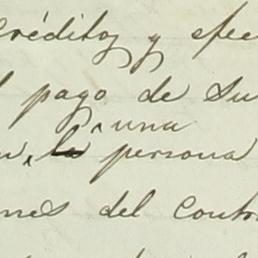 créditos y efec
l pago de su
una
u, la persona
ones del contr